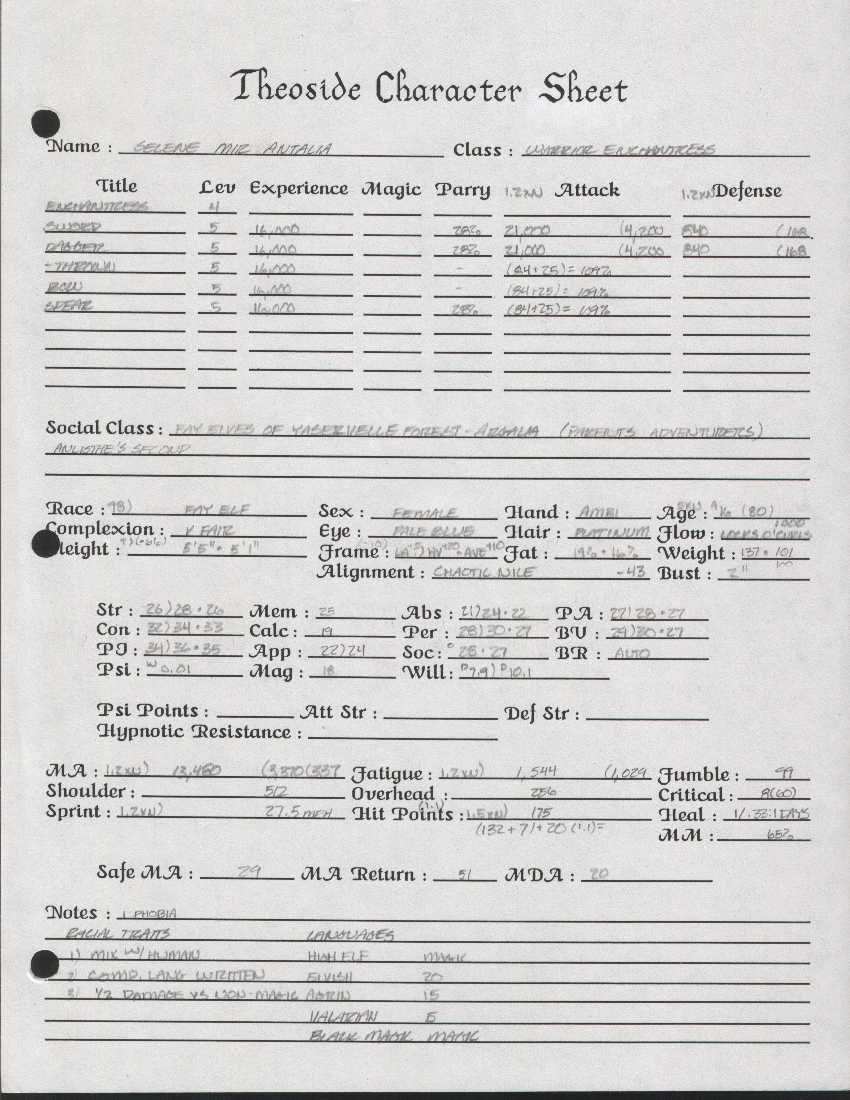 Theoside Character Sheet
Name : SELENE MIR ANTALIA Class : WARRIOR ENCHANTRESS
Title Lev Experience Magic Parry 1.2XN Attack 1.2XN Defense
ENCHANTRESS 4
SWORD 5 16,000 28% 21,000 (4,200 840 (168
DAGGER 5 16,000 28% 21,000 (4,200 840 (168
-THROWN 5 16,000 - (84+25)= 109%
BOW 5 16,000 - (84+25)= 109%
SPEAR 5 16,000 28% (84+25)= 109%
Social Class : FAY ELVES OF YASERVELLE FOREST - ARGALIA (PARENTS ADVENTURERS)
SECOND
Race : 98) FAY ELF Sex : FEMALE Hand : AMBI Age : (80)
Complexion : V FAIR Eye : PALE BLUE Hair : PLATINUM Flow : LOCKS O'CURLS
Height : 5'5" 5'1" Frame : HV AVE Fat : 19% 16% Weight : 137 101
Alignment : CHAOTIC NILE -43 Bust : 2"
Str : 26)28 26 Mem : 25 Abs : 21)24 22 PA : 27)28 27
Con : 32)34 33 Calc : 19 Per : 28)30 27 BV : 29)30 27
PJ : 34)36 35 App : 22)24 Soc : 28 27 BR : AUTO
Psi : 0.01 Mag : 18 Will : 7.9) 10.1
Psi Points : Att Str : Def Str :
Hypnotic Resistance :
MA : 1.2XN) 13,480 (3,370(337 Fatigue : 1.2XN) 1,544 (1,029 Fumble : 99
Shoulder : 512 Overhead : 256 Critical : 8(60)
Sprint : 1.2XN) 27.5 MPH Hit Points : 1.5XN) 175 Heal : 1/.33:1 DAYS
(132+7)+20 (1.1)= MM : 65%
Safe MA : 29 MA Return : 51 MDA : 20
Notes : 1 PHOBIA
RACIAL TRAITS LANGUAGES
1) MIX W/ HUMAN HIGH ELF MAGIK
2) COMP. LANG WRITTEN ELVISH 20
3) 1/2 DAMAGE VS NON-MAGIC AGRIN 15
VALARIAN 5
BLACK MAGIK MAGIK